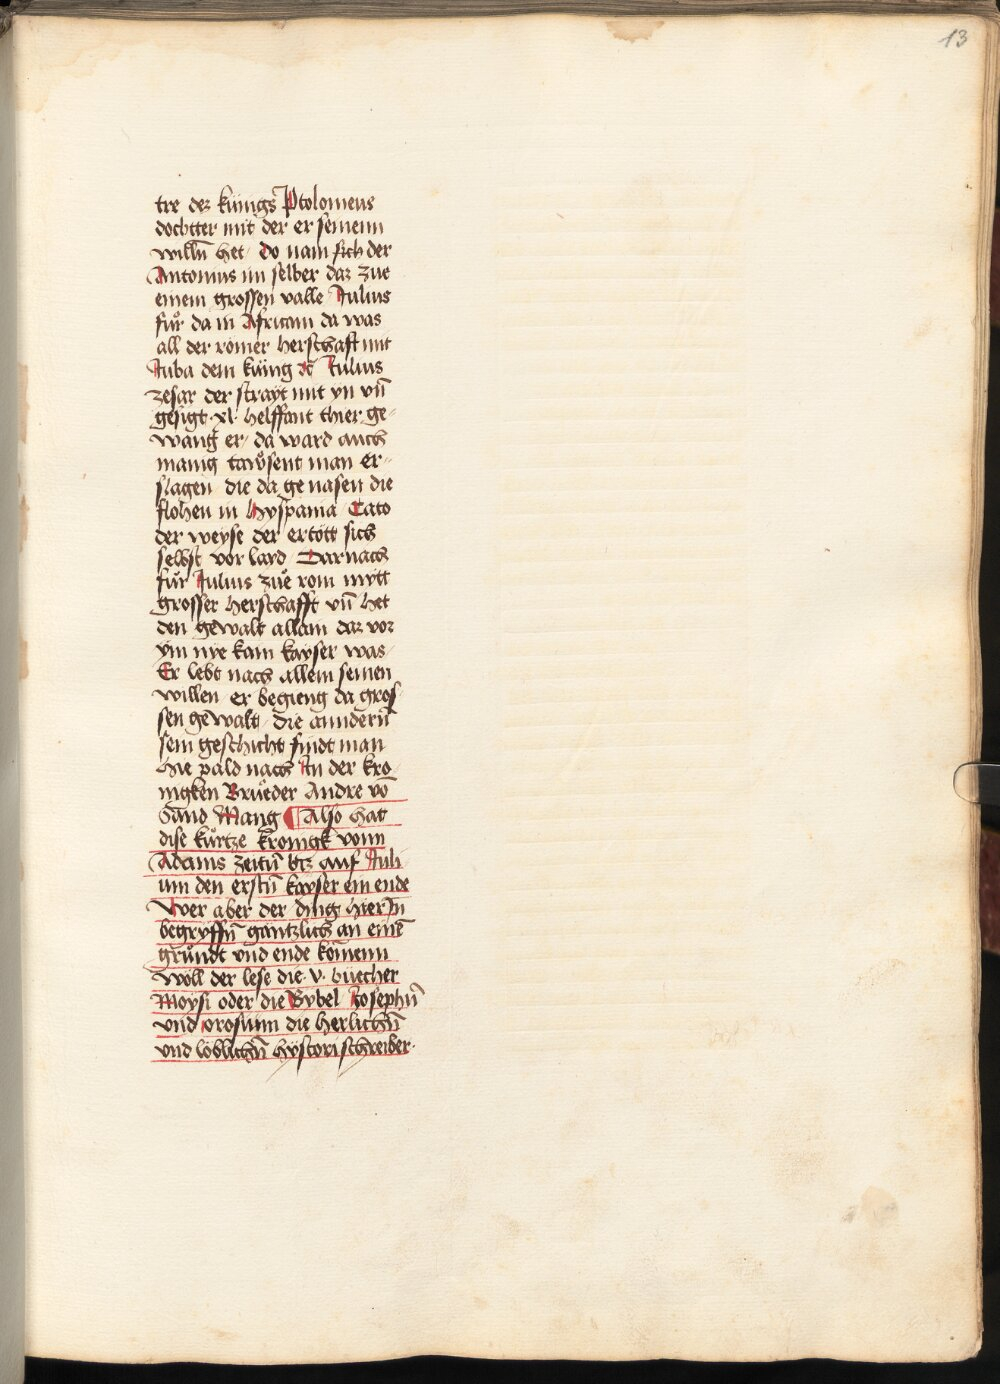 13
tre dez küngs Ptolomeus
dochtter mit der er seinenn
willn̄ het / do nam sich der
Antonius im selber daz zue
einem grossen valle Julius
fuͦr da in Africam da was
all der romer herschafft mit
Juba dem küng ꝛc Julius
zesar der strayt mit yn vn̄
gesigt · xl · helffant thier ge-
wang er / da ward auch
manig tawsent man er-
slagen die da genasen die
flohen in hyspania Cato
der weyse der ertott sich
selbst vor laid Darnach
fuͦr Julius zuͦe rom mytt
grosser herschafft vn̄ het
den gewalt allain daz vor
ym nye kain kayser was
Er lebt nach allem seinen
willen er begieng da gros
sen gewalt / die anndern̄
sein geschicht findt man
hie pald nach Jn der kro
nigken Bruͦeder Andre vō
Sand Mang Also hat
dise kürtze kronigk vonn
Adams zeitn̄ biz auf Juli
um den erstn̄ kayser ein ende
Wer aber der ding hier Jn
begryffn̄ gantzlich an einē
gründt vnd ende kömenn
wöll der lese die · v · buecher
Moysi oder die Bybel Josephū
vnd orosium die herlichn̄
vnd löblichn̄ hystori schreiber ·